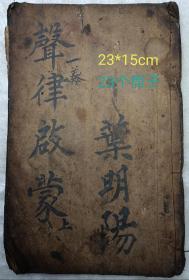 聲律啟蒙上
一卷
葉明陽
23*15cm